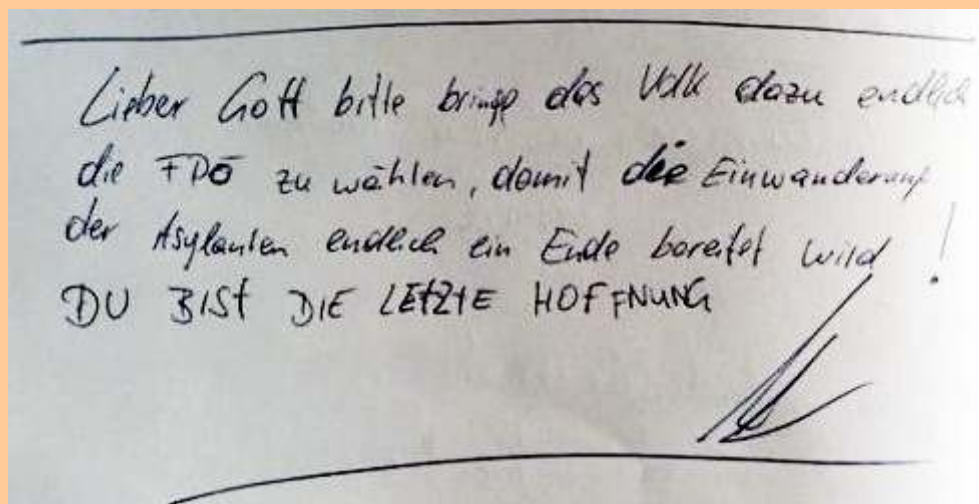 Lieber Gott bitte bringe das Volk dazu endlich
die FPÖ zu wählen, damit die Einwanderung
der Asylanten endlich ein Ende bereitet wird!
DU BIST DIE LETZTE HOFFNUNG